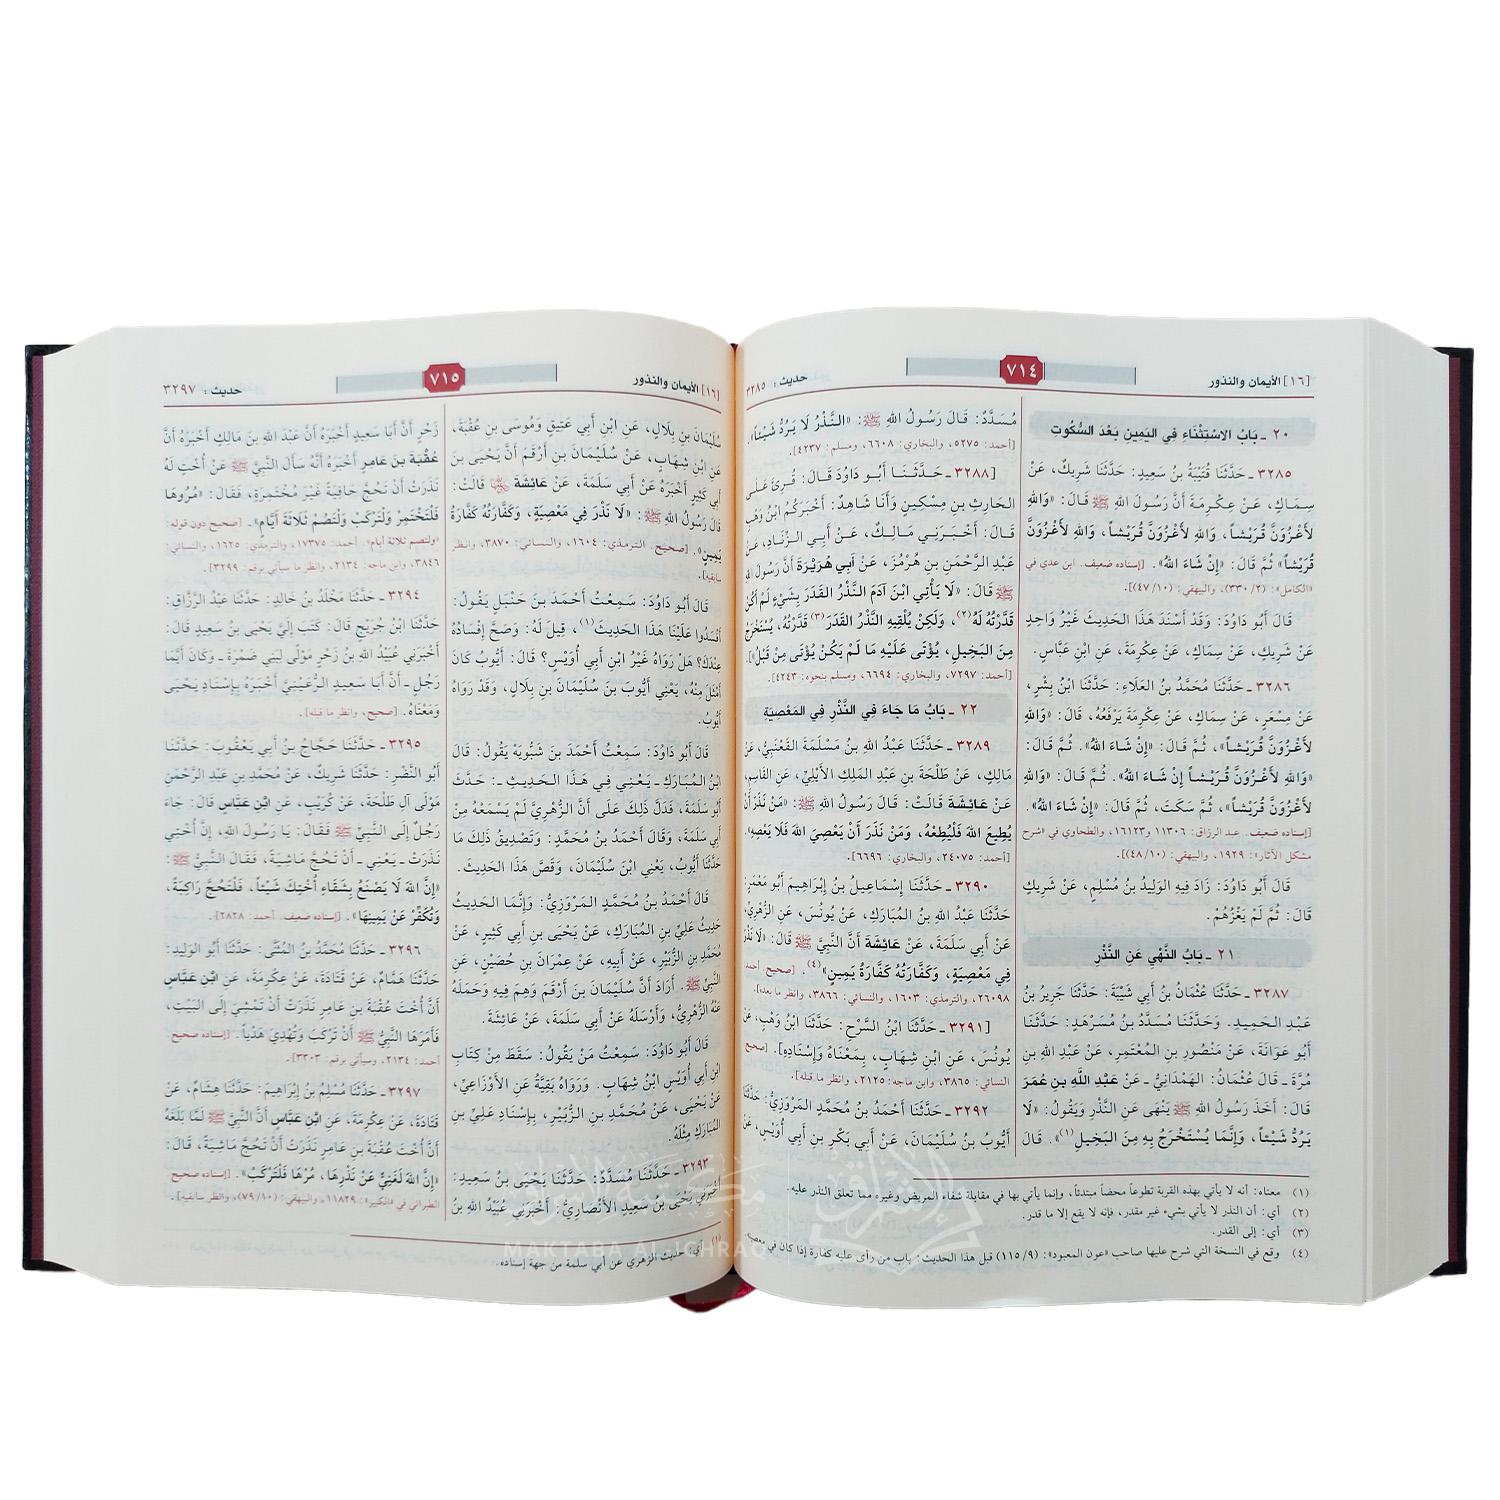 [١٦] الأيمان والنذور
٧١٤
حديث : ٣٢٨٥
٢٠ ـ بَابُ الاسْتِثْنَاءِ فِي اليَمِينِ بَعْدَ السُّكُوتِ
٣٢٨٥ ـ حَدَّثَنَا قُتَيْبَةُ بنُ سَعِيدٍ: حَدَّثَنَا شَرِيكٌ، عَنْ
سِمَاكٍ، عَنْ عِكْرِمَةَ أنَّ رَسُولَ اللهِ ﷺ قَالَ: «وَاللهِ
لأَغْزُوَنَّ قُرَيْشاً، وَاللهِ لأَغْزُوَنَّ قُرَيْشاً، وَاللهِ لأَغْزُوَنَّ
قُرَيْشاً» ثُمَّ قَالَ: «إِنْ شَاءَ اللهُ». [إسناده ضعيف. ابن عدي في
«الكامل»: (٣٣٠/٢)، والبيهقي: (٤٧/١٠)].
قَالَ أَبُو دَاوُدَ: وَقَدْ أَسْنَدَ هَذَا الحَدِيثَ غَيْرُ وَاحِدٍ
عَنْ شَرِيكٍ، عَنْ سِمَاكٍ، عَنْ عِكْرِمَةَ، عَنِ ابْنِ عَبَّاسٍ.
٣٢٨٦ ـ حَدَّثَنَا مُحَمَّدُ بنُ العَلَاءِ: حَدَّثَنَا ابْنُ بِشْرٍ،
عَنْ مِسْعَرٍ، عَنْ سِمَاكٍ، عَنْ عِكْرِمَةَ يَرْفَعُهُ، قَالَ: «وَاللهِ
لأَغْزُوَنَّ قُرَيْشاً»، ثُمَّ قَالَ: «إِنْ شَاءَ اللهُ». ثُمَّ قَالَ:
«وَاللهِ لأَغْزُوَنَّ قُرَيْشاً إِنْ شَاءَ اللهُ». ثُمَّ قَالَ: «وَاللهِ
لأَغْزُوَنَّ قُرَيْشاً»، ثُمَّ سَكَتَ، ثُمَّ قَالَ: «إِنْ شَاءَ اللهُ».
[إسناده ضعيف. عبد الرزاق: ١١٣٠٦ و١٦١٢٣، والطحاوي في «شرح
مشكل الآثار»: ١٩٢٩، والبيهقي: (٤٨/١٠)].
قَالَ أَبُو دَاوُدَ: زَادَ فِيهِ الوَلِيدُ بنُ مُسْلِمٍ، عَنْ شَرِيكٍ
قَالَ: ثُمَّ لَمْ يَغْزُهُمْ.
٢١ ـ بَابُ النَّهْيِ عَنِ النَّذْرِ
٣٢٨٧ ـ حَدَّثَنَا عُثْمَانُ بنُ أَبِي شَيْبَةَ: حَدَّثَنَا جَرِيرُ بنُ
عَبْدِ الحَمِيدِ. وَحَدَّثَنَا مُسَدَّدُ بنُ مُسَرْهَدٍ: حَدَّثَنَا
أَبُو عَوَانَةَ، عَنْ مَنْصُورِ بنِ المُعْتَمِرِ، عَنْ عَبْدِ اللهِ بنِ
مُرَّةَ ـ قَالَ عُثْمَانُ: الهَمْدَانِيُّ ـ عَنْ عَبْدِ اللهِ بنِ عُمَرَ
قَالَ: أَخَذَ رَسُولُ اللهِ ﷺ يَنْهَى عَنِ النَّذْرِ وَيَقُولُ: «لَا
يَرُدُّ شَيْئاً، وَإِنَّمَا يُسْتَخْرَجُ بِهِ مِنَ البَخِيلِ»(١). قَالَ
مُسَدَّدٌ: قَالَ رَسُولُ اللهِ ﷺ: «النَّذْرُ لَا يَرُدُّ شَيْئاً».
[أحمد: ٥٢٧٥، والبخاري: ٦٦٠٨، ومسلم: ٤٢٣٧].
[٣٢٨٨ ـ حَدَّثَنَا أَبُو دَاوُدَ قَالَ: قُرِئَ عَلَى
الحَارِثِ بنِ مِسْكِينٍ وَأَنَا شَاهِدٌ: أَخْبَرَكُمُ ابْنُ وَهْبٍ
قَالَ: أَخْبَرَنِي مَالِكٌ، عَنْ أَبِي الزِّنَادِ، عَنْ
عَبْدِ الرَّحْمَنِ بنِ هُرْمُزَ، عَنْ أَبِي هُرَيْرَةَ أَنَّ رَسُولَ اللهِ
ﷺ قَالَ: «لَا يَأْتِي ابْنَ آدَمَ النَّذْرُ القَدَرَ بِشَيْءٍ لَمْ أَكُنْ
قَدَّرْتُهُ لَهُ(٢)، وَلَكِنْ يُلْقِيهِ النَّذْرُ القَدَرَ(٣) قَدَّرْتُهُ، يُسْتَخْرَجُ
مِنَ البَخِيلِ، يُؤْتَى عَلَيْهِ مَا لَمْ يَكُنْ يُؤْتَى مِنْ قَبْلُ»].
[أحمد: ٧٢٩٧، والبخاري: ٦٦٩٤، ومسلم بنحوه: ٤٢٤٣].
٢٢ ـ بَابُ مَا جَاءَ فِي النَّذْرِ فِي المَعْصِيَةِ
٣٢٨٩ ـ حَدَّثَنَا عَبْدُ اللهِ بنُ مَسْلَمَةَ القَعْنَبِيُّ، عَنْ
مَالِكٍ، عَنْ طَلْحَةَ بنِ عَبْدِ المَلِكِ الأَيْلِيِّ، عَنِ القَاسِمِ،
عَنْ عَائِشَةَ قَالَتْ: قَالَ رَسُولُ اللهِ ﷺ: «مَنْ نَذَرَ أَنْ
يُطِيعَ اللهَ فَلْيُطِعْهُ، وَمَنْ نَذَرَ أَنْ يَعْصِيَ اللهَ فَلَا يَعْصِهِ».
[أحمد: ٢٤٠٧٥، والبخاري: ٦٦٩٦].
٣٢٩٠ ـ حَدَّثَنَا إِسْمَاعِيلُ بنُ إِبْرَاهِيمَ أَبُو مَعْمَرٍ:
حَدَّثَنَا عَبْدُ اللهِ بنُ المُبَارَكِ، عَنْ يُونُسَ، عَنِ الزُّهْرِيِّ،
عَنْ أَبِي سَلَمَةَ، عَنْ عَائِشَةَ أَنَّ النَّبِيَّ ﷺ قَالَ: «لَا نَذْرَ
فِي مَعْصِيَةٍ، وَكَفَّارَتُهُ كَفَّارَةُ يَمِينٍ»(٤). [صحيح. أحمد:
٢٦٠٩٨، والترمذي: ١٦٠٣، والنسائي: ٣٨٦٦، وانظر ما بعده].
[٣٢٩١ ـ حَدَّثَنَا ابْنُ السَّرْحِ: حَدَّثَنَا ابْنُ وَهْبٍ، عَنْ
يُونُسَ، عَنِ ابْنِ شِهَابٍ، بِمَعْنَاهُ وَإِسْنَادِهِ]. [صحيح.
النسائي: ٣٨٦٥، وابن ماجه: ٢١٢٥، وانظر ما قبله].
٣٢٩٢ ـ حَدَّثَنَا أَحْمَدُ بنُ مُحَمَّدٍ المَرْوَزِيُّ: حَدَّثَنَا
أَيُّوبُ بنُ سُلَيْمَانَ، عَنْ أَبِي بَكْرِ بنِ أَبِي أُوَيْسٍ، عَنْ
(١) معناه: أنه لا يأتي بهذه القربة تطوعاً محضاً مبتدئاً، وإنما يأتي بها في مقابلة شفاء المريض وغيره مما تعلق النذر عليه.
(٢) أي: أن النذر لا يأتي بشيء غير مقدر، فإنه لا يقع إلا ما قدر.
(٣) أي: إلى القدر.
(٤) وقع في النسخة التي شرح عليها صاحب «عون المعبود»: (١١٥/٩) قبل هذا الحديث: باب من رأى عليه كفارة إذا كان في معصية.
[١٦] الأيمان والنذور
٧١٥
حديث : ٣٢٩٧
سُلَيْمَانَ بنِ بِلَالٍ، عَنِ ابْنِ أَبِي عَتِيقٍ وَمُوسَى بنِ عُقْبَةَ،
عَنِ ابْنِ شِهَابٍ، عَنْ سُلَيْمَانَ بنِ أَرْقَمَ أَنَّ يَحْيَى بنَ
أَبِي كَثِيرٍ أَخْبَرَهُ عَنْ أَبِي سَلَمَةَ، عَنْ عَائِشَةَ ﵂ قَالَتْ:
قَالَ رَسُولُ اللهِ ﷺ: «لَا نَذْرَ فِي مَعْصِيَةٍ، وَكَفَّارَتُهُ كَفَّارَةُ
يَمِينٍ». [صحيح. الترمذي: ١٦٠٤، والنسائي: ٣٨٧٠، وانظر
سابقيه].
قَالَ أَبُو دَاوُدَ: سَمِعْتُ أَحْمَدَ بنَ حَنْبَلٍ يَقُولُ:
أَفْسَدُوا عَلَيْنَا هَذَا الحَدِيثَ(١)، قِيلَ لَهُ: وَصَحَّ إِفْسَادُهُ
عِنْدَكَ؟ هَلْ رَوَاهُ غَيْرُ ابْنِ أَبِي أُوَيْسٍ؟ قَالَ: أَيُّوبُ كَانَ
أَمْثَلَ مِنْهُ، يَعْنِي أَيُّوبَ بنَ سُلَيْمَانَ بنِ بِلَالٍ، وَقَدْ رَوَاهُ
أَيُّوبُ.
قَالَ أَبُو دَاوُدَ: سَمِعْتُ أَحْمَدَ بنَ شَبُّويَهْ يَقُولُ: قَالَ
ابْنُ المُبَارَكِ ـ يَعْنِي فِي هَذَا الحَدِيثِ ـ: حَدَّثَ
أَبُو سَلَمَةَ، فَدَلَّ ذَلِكَ عَلَى أَنَّ الزُّهْرِيَّ لَمْ يَسْمَعْهُ مِنْ
أَبِي سَلَمَةَ، وَقَالَ أَحْمَدُ بنُ مُحَمَّدٍ: وَتَصْدِيقُ ذَلِكَ مَا
حَدَّثَنَا أَيُّوبُ، يَعْنِي ابْنَ سُلَيْمَانَ، وَقَصَّ هَذَا الحَدِيثَ.
قَالَ أَحْمَدُ بنُ مُحَمَّدٍ المَرْوَزِيُّ: وَإِنَّمَا الحَدِيثُ
حَدِيثُ عَلِيِّ بنِ المُبَارَكِ، عَنْ يَحْيَى بنِ أَبِي كَثِيرٍ، عَنْ
مُحَمَّدِ بنِ الزُّبَيْرِ، عَنْ أَبِيهِ، عَنْ عِمْرَانَ بنِ حُصَيْنٍ، عَنِ
النَّبِيِّ ﷺ. أَرَادَ أَنَّ سُلَيْمَانَ بنَ أَرْقَمَ وَهِمَ فِيهِ وَحَمَلَهُ
عَنْهُ الزُّهْرِيُّ، وَأَرْسَلَهُ عَنْ أَبِي سَلَمَةَ، عَنْ عَائِشَةَ.
قَالَ أَبُو دَاوُدَ: سَمِعْتُ مَنْ يَقُولُ: سَقَطَ مِنْ كِتَابِ
ابْنِ أَبِي أُوَيْسٍ ابْنُ شِهَابٍ. وَرَوَاهُ بَقِيَّةُ عَنِ الأَوْزَاعِيِّ،
عَنْ يَحْيَى، عَنْ مُحَمَّدِ بنِ الزُّبَيْرِ، بِإِسْنَادِ عَلِيِّ بنِ
المُبَارَكِ مِثْلَهُ.
٣٢٩٣ ـ حَدَّثَنَا مُسَدَّدٌ: حَدَّثَنَا يَحْيَى بنُ سَعِيدٍ:
أَخْبَرَنِي يَحْيَى بنُ سَعِيدٍ الأَنْصَارِيُّ: أَخْبَرَنِي عُبَيْدُ اللهِ بنُ
زَحْرٍ أَنَّ أَبَا سَعِيدٍ أَخْبَرَهُ أَنَّ عَبْدَ اللهِ بنَ مَالِكٍ أَخْبَرَهُ أَنَّ
عُقْبَةَ بنَ عَامِرٍ أَخْبَرَهُ أَنَّهُ سَأَلَ النَّبِيَّ ﷺ عَنْ أُخْتٍ لَهُ
نَذَرَتْ أَنْ تَحُجَّ حَافِيَةً غَيْرَ مُخْتَمِرَةٍ، فَقَالَ: «مُرُوهَا
فَلْتَخْتَمِرْ وَلْتَرْكَبْ وَلْتَصُمْ ثَلَاثَةَ أَيَّامٍ». [صحيح دون قوله:
«ولتصم ثلاثة أيام». أحمد: ١٧٣٧٥، والترمذي: ١٦٢٥، والنسائي:
٣٨٤٦، وابن ماجه: ٢١٣٤، وانظر ما سيأتي برقم: ٣٢٩٩].
٣٢٩٤ ـ حَدَّثَنَا مَخْلَدُ بنُ خَالِدٍ: حَدَّثَنَا عَبْدُ الرَّزَّاقِ:
حَدَّثَنَا ابْنُ جُرَيْجٍ قَالَ: كَتَبَ إِلَيَّ يَحْيَى بنُ سَعِيدٍ قَالَ:
أَخْبَرَنِي عُبَيْدُ اللهِ بنُ زَحْرٍ مَوْلًى لِبَنِي ضَمْرَةَ ـ وَكَانَ أَيَّمَا
رَجُلٍ ـ أَنَّ أَبَا سَعِيدٍ الرُّعَيْنِيَّ أَخْبَرَهُ بِإِسْنَادِ يَحْيَى
وَمَعْنَاهُ. [صحيح، وانظر ما قبله].
٣٢٩٥ ـ حَدَّثَنَا حَجَّاجُ بنُ أَبِي يَعْقُوبَ: حَدَّثَنَا
أَبُو النَّضْرِ: حَدَّثَنَا شَرِيكٌ، عَنْ مُحَمَّدِ بنِ عَبْدِ الرَّحْمَنِ
مَوْلَى آلِ طَلْحَةَ، عَنْ كُرَيْبٍ، عَنِ ابْنِ عَبَّاسٍ قَالَ: جَاءَ
رَجُلٌ إِلَى النَّبِيِّ ﷺ فَقَالَ: يَا رَسُولَ اللهِ، إِنَّ أُخْتِي
نَذَرَتْ ـ يَعْنِي ـ أَنْ تَحُجَّ مَاشِيَةً، فَقَالَ النَّبِيُّ ﷺ:
«إِنَّ اللهَ لَا يَصْنَعُ بِشَقَاءِ أُخْتِكَ شَيْئاً، فَلْتَحُجَّ رَاكِبَةً،
وَتُكَفِّرْ عَنْ يَمِينِهَا». [إسناده ضعيف. أحمد: ٢٨٢٨].
٣٢٩٦ ـ حَدَّثَنَا مُحَمَّدُ بنُ المُثَنَّى: حَدَّثَنَا أَبُو الوَلِيدِ:
حَدَّثَنَا هَمَّامٌ، عَنْ قَتَادَةَ، عَنْ عِكْرِمَةَ، عَنِ ابْنِ عَبَّاسٍ
أَنَّ أُخْتَ عُقْبَةَ بنِ عَامِرٍ نَذَرَتْ أَنْ تَمْشِيَ إِلَى البَيْتِ،
فَأَمَرَهَا النَّبِيُّ ﷺ أَنْ تَرْكَبَ وَتُهْدِيَ هَدْياً. [إسناده صحيح.
أحمد: ٢١٣٤، وسيأتي برقم: ٣٣٠٣].
٣٢٩٧ ـ حَدَّثَنَا مُسْلِمُ بنُ إِبْرَاهِيمَ: حَدَّثَنَا هِشَامٌ، عَنْ
قَتَادَةَ، عَنْ عِكْرِمَةَ، عَنِ ابْنِ عَبَّاسٍ أَنَّ النَّبِيَّ ﷺ لَمَّا بَلَغَهُ
أَنَّ أُخْتَ عُقْبَةَ بنِ عَامِرٍ نَذَرَتْ أَنْ تَحُجَّ مَاشِيَةً، قَالَ:
«إِنَّ اللهَ لَغَنِيٌّ عَنْ نَذْرِهَا، مُرْهَا فَلْتَرْكَبْ». [إسناده صحيح.
الطبراني في «الكبير»: ١١٨٢٩، والبيهقي: (٧٩/١٠)، وانظر سابقيه].
(١) أي: حديث الزهري عن أبي سلمة من جهة إسناده.
مكتبة الإشراق
MAKTABA AL ICHRAQ